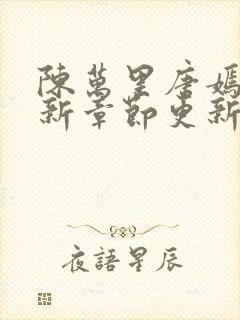 陳萬里唐嫣
新章節更新
夜語星辰